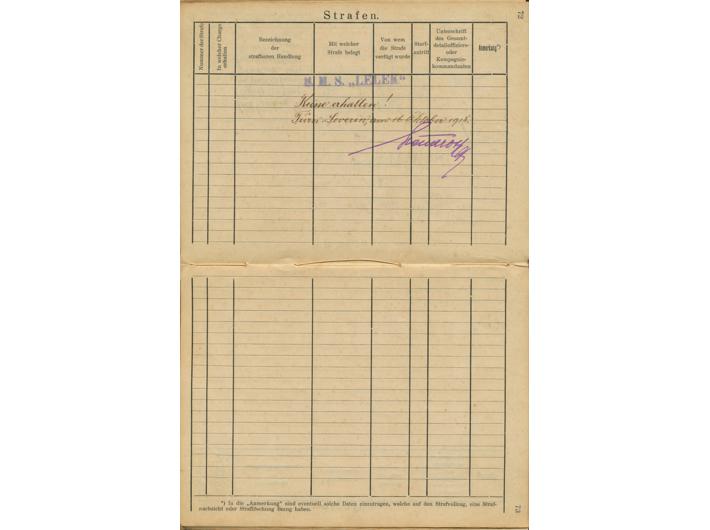 Strafen.
72
Nummer der Strafe
In welcher Charge erhalten
Bezeichnung
der
strafbaren Handlung
Mit welcher
Strafe belegt
Von wem
die Strafe
verfügt wurde
Straf-
antritt
Unterschrift
des Gesamt-
detailoffiziers
oder
Kompagnie-
kommandanten
Anmerkung*)
S. M. S. „LELEK“
Keine erhalten!
am 16. Oktober 1918.
*) In die „Anmerkung“ sind eventuell solche Daten einzutragen, welche auf den Strafvollzug, eine Straf-
nachsicht oder Straflöschung Bezug haben.
73